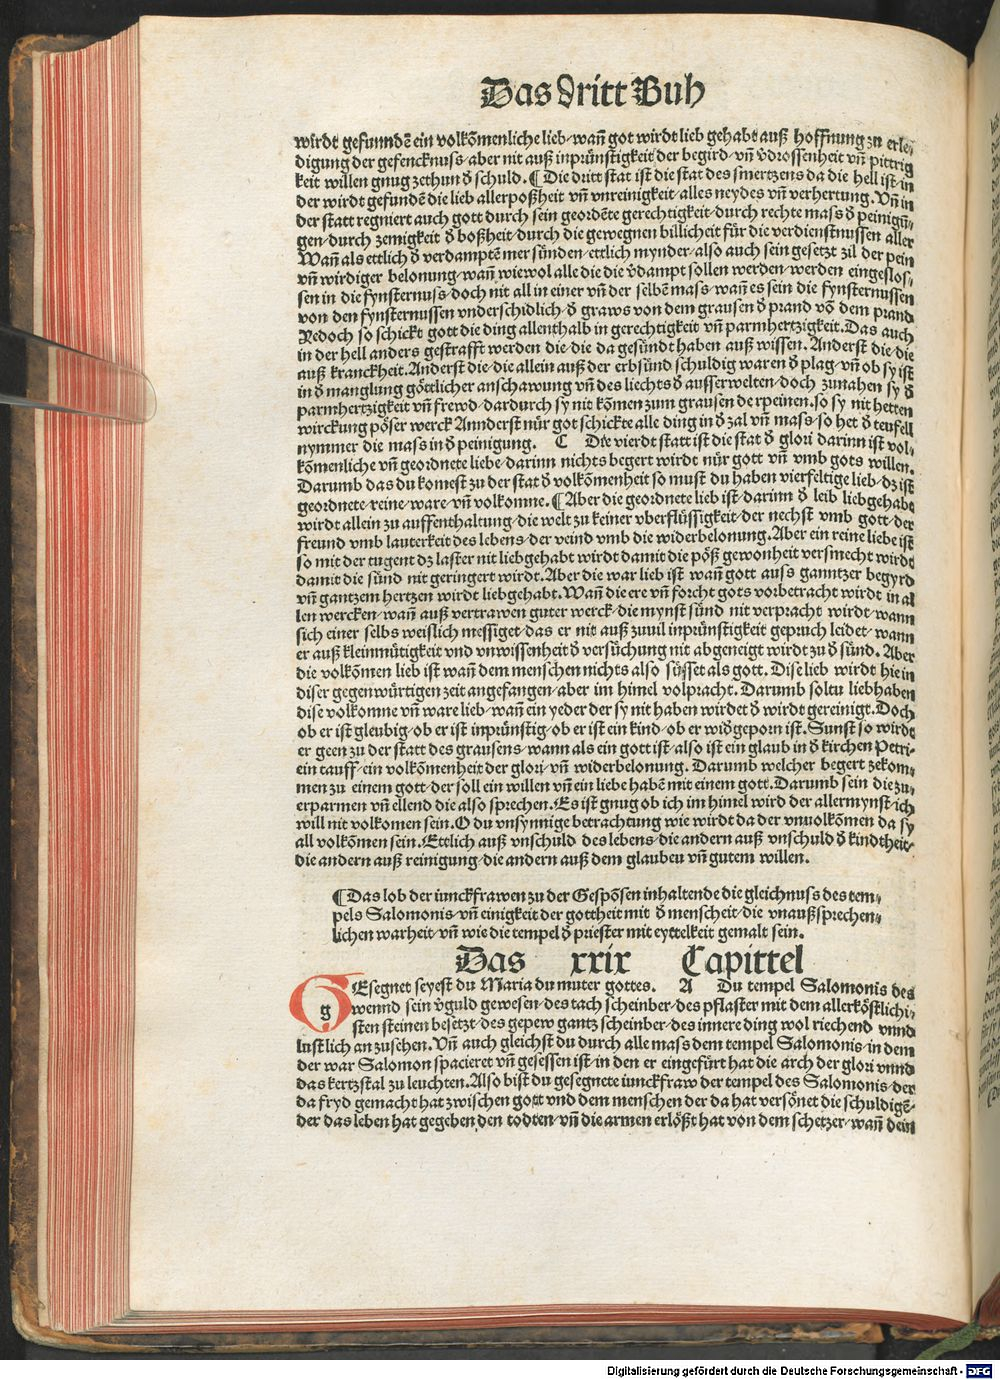 Das dritt Buh
wirdt gefunndē ein volkōmenliche lieb/wañ got wirdt lieb gehabt auß hoffnung zu erle⸗
digung der gefencknuss/aber nit auß inprünstigkeit der begird/vñ v̄drossenheit vñ pittrig
keit willen gnug zethun d̄ schuld. ¶ Die dritt stat ist die stat des smertzens da die hell ist/in
der wirdt gefundē die lieb allerpoßheit vñ vnreinigkeit/alles neydes vñ verhertung. Vñ in
der statt regniert auch gott durch sein geordēte gerechtigkeit/durch rechte mass d̄ peinigū⸗
gen/durch zemigkeit d̄ boßheit/durch die gewegnen billicheit für die verdienstnussen aller
Wañ als ettlich d̄ verdamptē mer sünden/ettlich mynder/also auch sein gesetzt zil der pein
vñ wirdiger belonung/wañ wiewol alle die die v̄dampt sollen werden/werden eingeslos⸗
sen in die fynsternuss/doch nit all in einer vñ der selbē mass/wañ es sein die fynsternussen
von den fynsternussen vnderschidlich/d̄ graws von dem grausen d̄ prand vō dem prand
Yedoch so schickt gott die ding allenthalb in gerechtigkeit vñ parmhertzigkeit. Das auch
in der hell anders gestrafft werden die/die da gesündt haben auß wissen. Anderst die/die
auß kranckheit. Anderst die/die allein auß der erbsünd schuldig waren d̄ plag/vñ ob sy ist
in d̄ manglung göttlicher anschawung vñ des liechts d̄ ausserwelten/doch zunahen sy d̄
parmhertzigkeit vñ frewd/dardurch sy nit kōmen zum grausen de rpeinen. so sy nit hetten
wirckung pöser werck Annderst nūr got schickte alle ding in d̄ zal vñ mass/so het d̄ teufell
nymmer die mass in d̄ peinigung. C Die vierdt statt ist die stat d̄ glori darinn ist vol⸗
kōmenliche vñ geordnete liebe/darinn nichts begert wirdt nūr gott vñ vmb gots willen.
Darumb das du komest zu der stat d̄ volkōmenheit so must du haben vierfeltige lieb/dz ist
geordnete/reine/ware/vñ volkomne. ¶ Aber die geordnete lieb ist/darinn d̄ leib liebgehabt
wirdt allein zu auffenthaltung/die welt zu keiner vberflüssigkeit/der nechst vmb gott/der
freund vmb lauterkeit des lebens/der veind vmb die widerbelonung. Aber ein reine liebe ist
so mit der tugent dz laster nit liebgehabt wirdt damit die pöß gewonheit versmecht wirdt
damit die sünd nit geringert wirdt. Aber die war lieb ist wañ gott auss ganntzer begyrd
vñ gantzem hertzen wirdt liebgehabt. Wañ die ere vñ forcht gots vorbetracht wirdt in al
len wercken/wañ auß vertrawen guter werck/die mynst sünd nit verpracht wirdt/wann
sich einer selbs weislich messiget/das er nit auß zuuil inprünstigkeit gepruch leidet/wann
er auß kleinmütigkeit vnd vnwissenheit d̄ versüchung nit abgeneigt wirdt zu d̄ sünd. Aber
die volkōmen lieb ist wañ dem menschen nichts also süsset als gott. Dise lieb wirdt hie in
diser gegenwürtigen zeit angefangen/aber im himel volpracht. Darumb soltu liebhaben
dise volkomne vñ ware lieb/wañ ein yeder der sy nit haben wirdet d̄ wirdt gereinigt. Doch
ob er ist gleubig/ob er ist inprünstig/ob er ist ein kind/ob er wid̄geporn ist. Sunst so wirdt
er geen zu der statt des grausens/wann als ein gott ist/also ist ein glaub in d̄ kirchen Petri⸗
ein tauff/ein volkōmenheit der glori/vñ widerbelonung. Darumb welcher begert zekom⸗
men zu einem gott/der soll ein willen vñ ein liebe habē mit einem gott. Darumb sein die zu⸗
erparmen vñ ellend die also sprechen. Es ist gnug ob ich im himel wird der allermynst/ich
will nit volkomen sein. O du vnsynnige betrachtung wie wirdt da der vnuolkōmen da sy
all volkōmen sein. Ettlich auß vnschuld des lebens/die andern auß vnschuld d̄ kindtheit/
die andern auß reinigung/die andern auß dem glauben vñ gutem willen.
¶ Das lob der iunckfrawen zu der Gespōsen inhaltende die gleichnuss des tem⸗
pels Salomonis/vñ einigkeit der gottheit mit d̄ menscheit/die vnaußsprechen⸗
lichen warheit/vñ wie die tempel d̄ priester mit eyttelkeit gemalt sein.
Das xxix Capittel
GEsegnet seyest du Maria du muter gottes. A Du tempel Salomonis des
g wennd sein v̄guld gewesen/des tach scheinber/des pflaster mit dem allerköstlichi⸗
sten steinen besetzt/des gepew gantz scheinber/des innere ding wol riechend vnnd
lustlich an zusehen. Vñ auch gleichst du durch alle mass dem tempel Salomonis/in dem
der war Salomon spacieret vñ gesessen ist/in den er eingefürt hat die arch der glori vnnd
das kertzstal zu leuchten. Also bist du gesegnete iunckfraw der tempel des Salomonis/der
da fryd gemacht hat zwischen gott vnd dem menschen der da hat versönet die schuldigē⸗
der das leben hat gegeben den todten/vñ die armen erlößt hat von dem schetzer/wañ dein
Digitalisierung gefördert durch die Deutsche Forschungsgemeinschaft - DFG